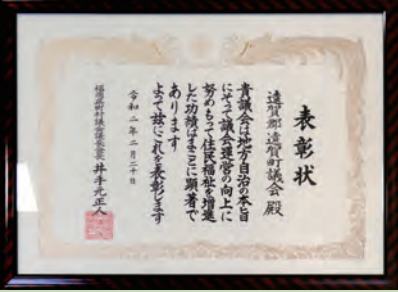 表彰状
遠賀郡遠賀町議会殿
貴議会は地方自治の本旨
にそって議会運営の向上に
努めもって住民福祉を増進
した功績はまことに顕著で
あります
よって茲にこれを表彰します
令和二年二月二十日
福岡県町村議会議長会会長 井手元正人